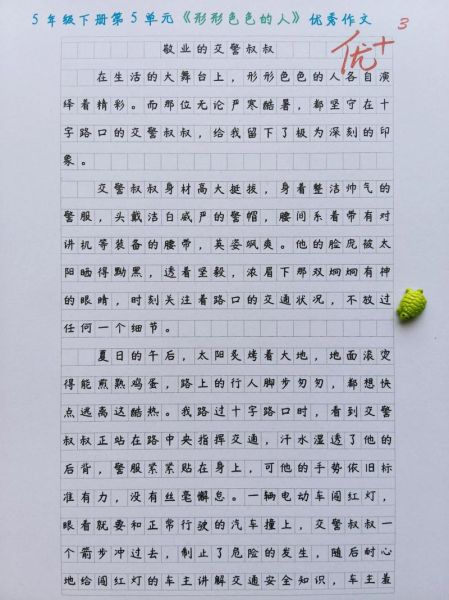 5年级下册第5单元《形形色色的人》优秀作文
优+
3
敬业的交警叔叔
在生活的大舞台上，形形色色的人各自演
绎着精彩。而那位无论严寒酷暑，都坚守在十
字路口的交警叔叔，给我留下了极为深刻的印
象。
交警叔叔身材高大挺拔，身着整洁帅气的
警服，头戴洁白威严的警帽，腰间系着带有对
讲机等装备的腰带，英姿飒爽。他的脸庞被太
阳晒得黝黑，透着坚毅，浓眉下那双炯炯有神
的眼睛，时刻关注着路口的交通状况，不放过
任何一个细节。
夏日的午后，太阳炙烤着大地，地面滚烫
得能煎熟鸡蛋，路上的行人脚步匆匆，都想快
点逃离这酷热。我路过十字路口时，看到交警
叔叔正站在路中央指挥交通，汗水湿透了他的
后背，警服紧紧贴在身上，可他的手势依旧标
准有力，没有丝毫懈怠。一辆电动车闯红灯，
眼看就要和正常行驶的汽车撞上，交警叔叔一
个箭步冲过去，制止了危险的发生，随后耐心
地给闯红灯的车主讲解交通安全知识，车主羞